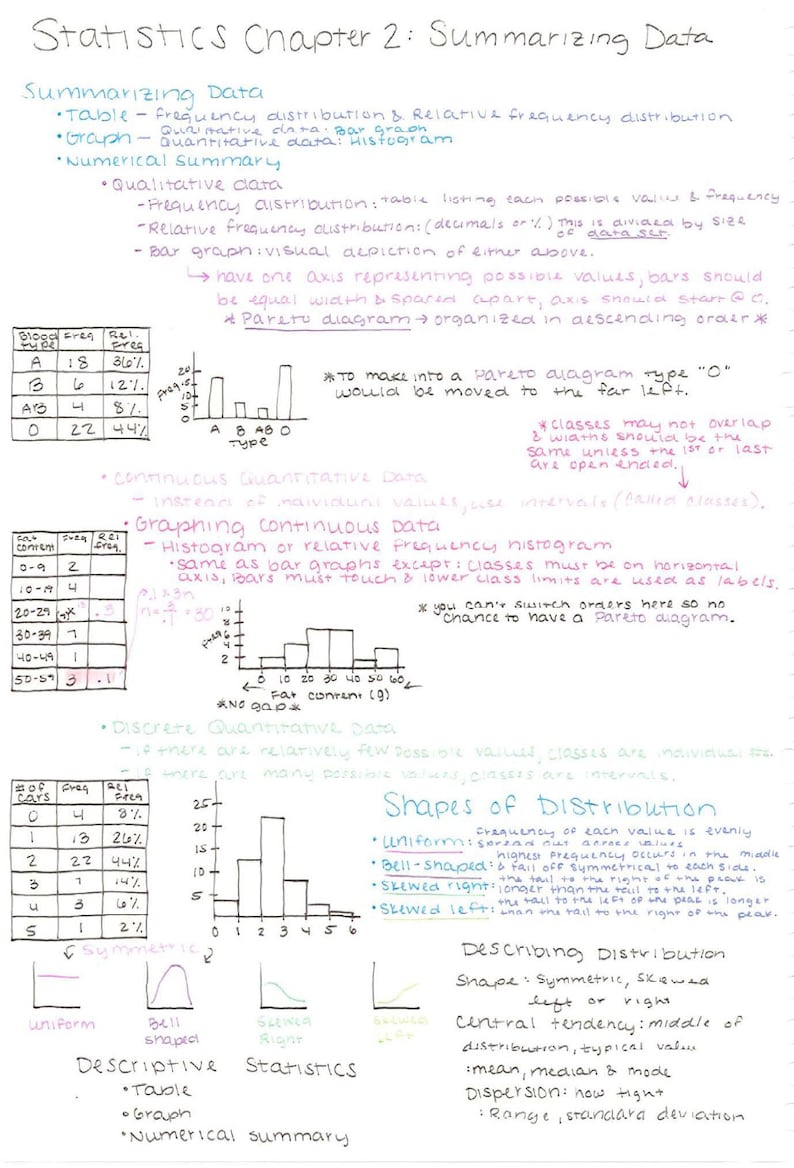 Statistics Chapter 2: Summarizing Data
Summarizing Data
• Table – Frequency distribution & Relative frequency distribution
• Graph – Qualitative data: Bar graph
Quantitative data: Histogram
• Numerical Summary
• Qualitative data
– Frequency distribution: table listing each possible value & frequency
– Relative frequency distribution: (decimals or %) This is divided by size
of data set.
– Bar graph: visual depiction of either above.
↳ have one axis representing possible values, bars should
be equal width & spaced apart, axis should start @ 0.
* Pareto diagram → organized in descending order *
Blood Type Freq Rel. Freq
A 18 36%
B 6 12%
AB 4 8%
O 22 44%
20
15
10
5
0
Freq.
A B AB O
Type
* To make into a Pareto diagram type "O"
would be moved to the far left.
* Classes may not overlap
& widths should be the
same unless the 1st or last
are open ended.
• Continuous Quantitative Data
– Instead of individual values, use intervals (called classes).
• Graphing Continuous Data
– Histogram or relative frequency histogram
• same as bar graphs except: classes must be on horizontal
axis, Bars must touch & lower class limits are used as labels.
Fat Content Freq Rel freq.
0-9 2
10-19 4
20-29 .3
30-39 7
40-49 1
50-59 3 .1
.1 × 3n
n = 3/.1 = 30
10
8
6
4
2
Freq
0 10 20 30 40 50 60
Fat content (g)
*No gap*
* you can't switch orders here so no
chance to have a Pareto diagram.
• Discrete Quantitative Data
– if there are relatively few possible values, classes are individual
– if there are many possible values, classes are intervals.
# of cars Freq Rel Freq
0 4 8%
1 13 26%
2 22 44%
3 7 14%
4 3 6%
5 1 2%
25
20
15
10
5
0 1 2 3 4 5 6
Shapes of Distribution
• Uniform: Frequency of each value is evenly
spread out across values
• Bell-shaped: highest frequency occurs in the middle
& tail off symmetrical to each side.
• Skewed right: the tail to the right of the peak is
longer than the tail to the left.
• Skewed left: the tail to the left of the peak is longer
than the tail to the right of the peak.
Symmetric
Uniform
Bell
shaped
Skewed
Right
Skewed
Left
Describing Distribution
Shape: Symmetric, Skewed
left or right
Central tendency: middle of
distribution, typical value
: mean, median & mode
Dispersion: how tight
: Range, standard deviation
Descriptive Statistics
• Table
• Graph
• Numerical summary